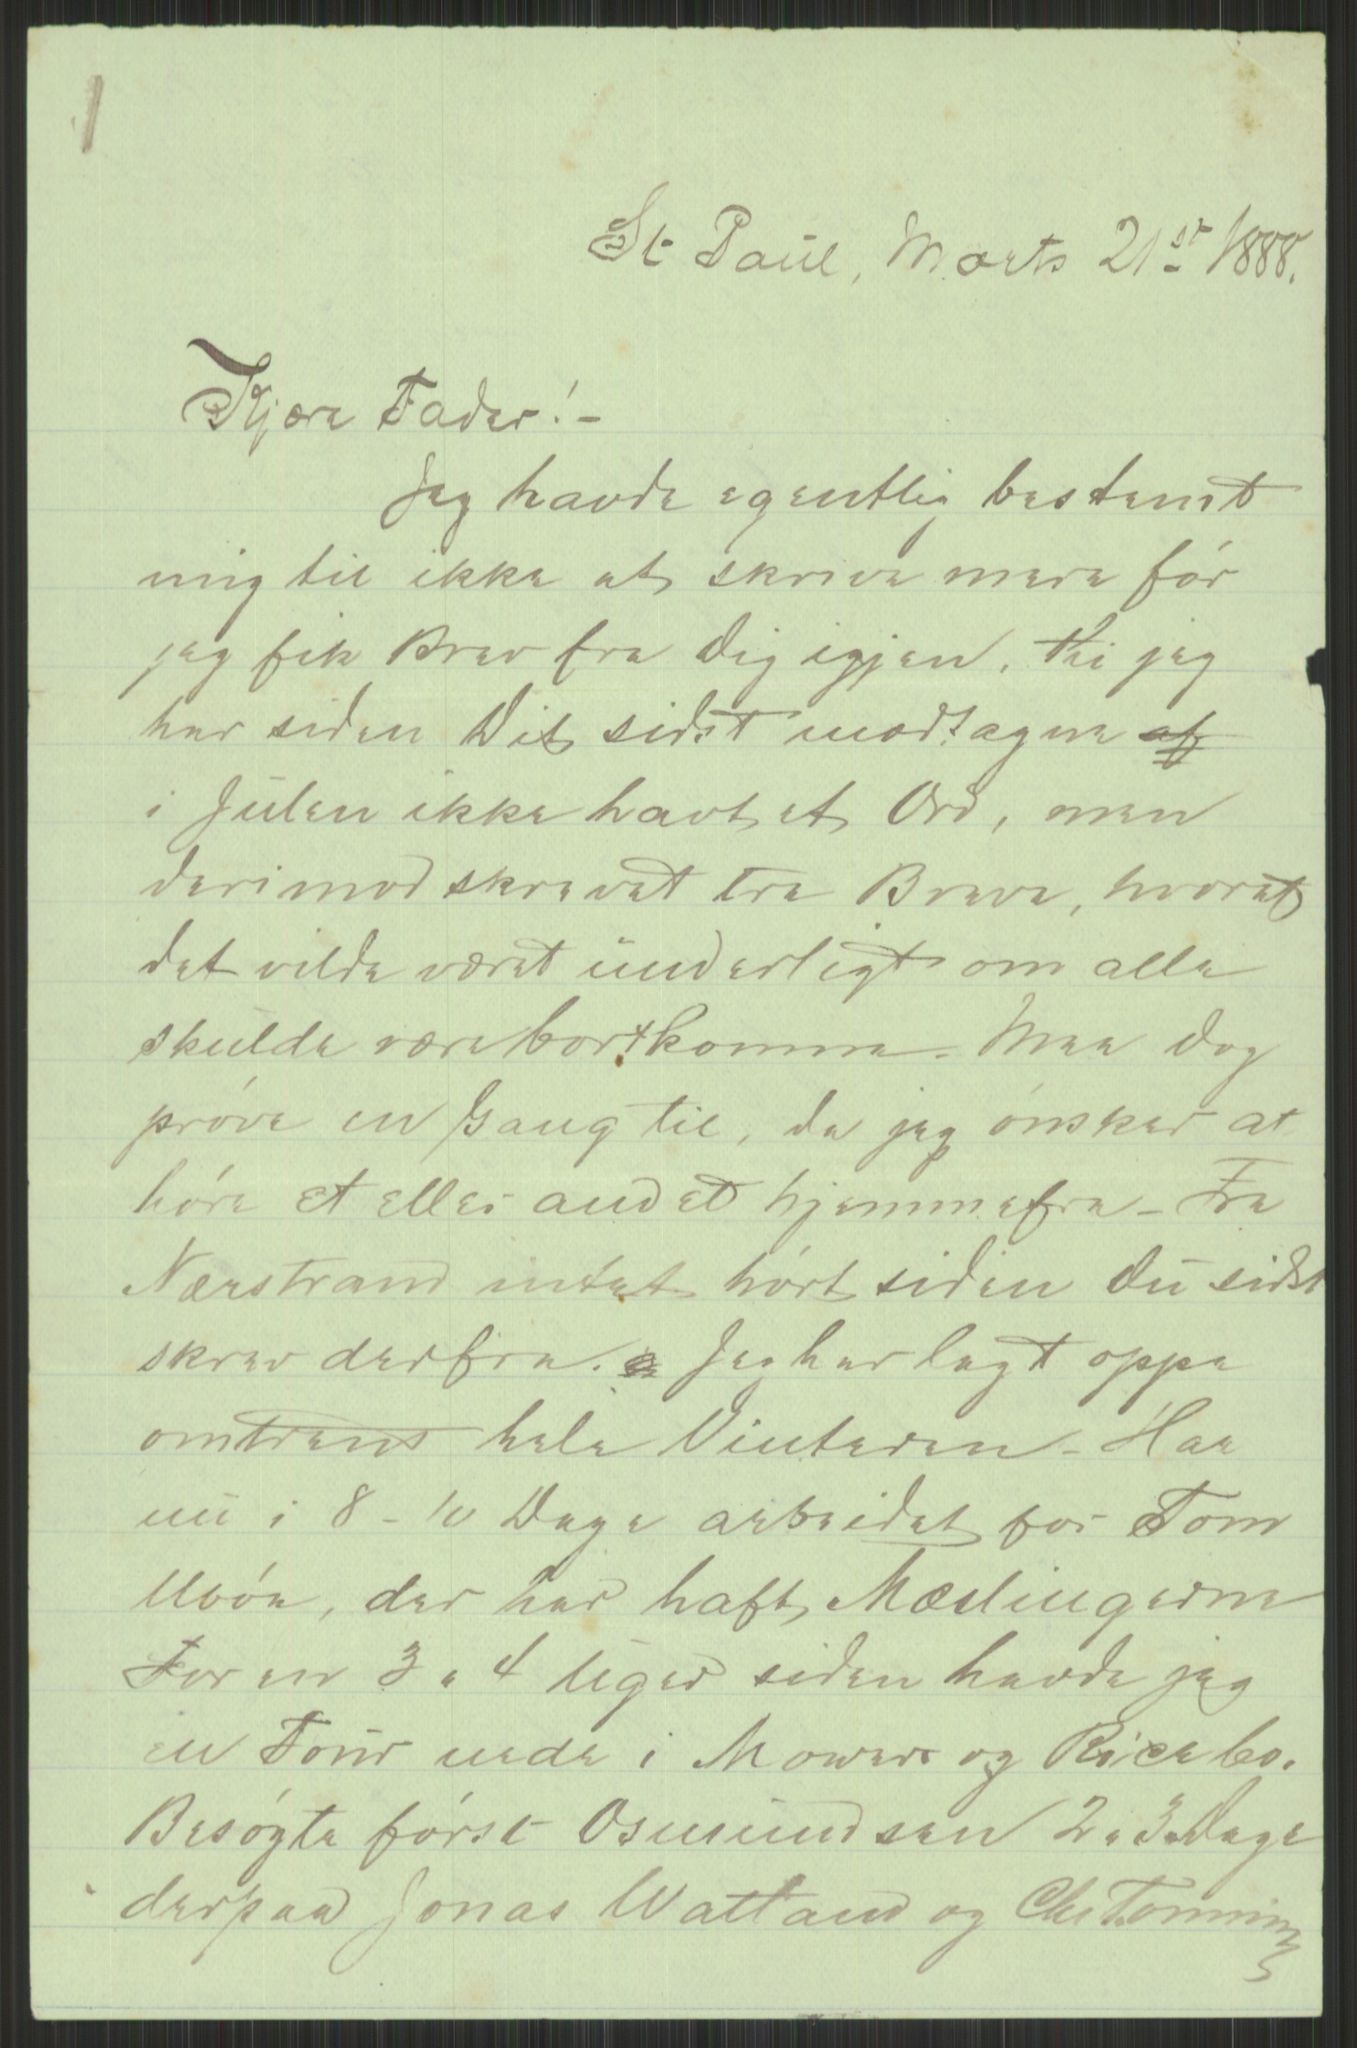 1
St Paul, Marts 21st 1888.
Kjære Fader! -
Jeg havde egentlig bestemt
mig til ikke at skrive mere før
jeg fik Brev fra Dig igjen, thi jeg
har siden Dit sidst modtagne af
i Julen ikke havt et Ord, men
derimod skrevet tre Breve, hvorat
det vilde været underligt om alle
skulde være bortkomne. Maa dog
prøve en Gang til, da jeg ønsker at
høre et eller andet hjemmefra - Fra
Nærstrand intet hørt siden Du sidst
skrev derfra. Jeg har lagt oppe
omtrent hele Vinteren - Har
nu i 8 - 10 Dage arbeidet for Tom
der har haft Mæslingerne
For en 3 a 4 Uger siden havde jeg
en Tour nede i Mower og Rice Co.
Besøgte først Osmundsen 2 a 3 Dage
derpaa Jonas Watland og Chr. Tonning